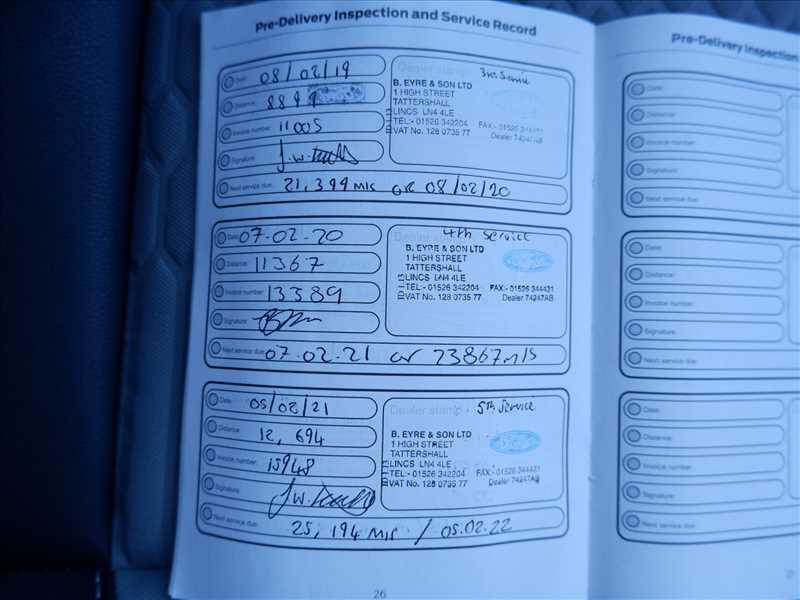 Pre-Delivery Inspection and Service Record
Date: 08/02/19
Distance: 889
Invoice number: 11005
Signature:
Next service due: 21,399 mls or 08/02/20
Dealer stamp: 3rd Service
B. EYRE & SON LTD
1 HIGH STREET
TATTERSHALL
LINCS LN4 4LE
TEL:- 01526 342204 FAX:- 01526 344431
VAT No. 128 0735 77 Dealer 74247AB
Date: 07-02-20
Distance: 11367
Invoice number: 13389
Signature:
Next service due: 07-02-21 or 23867 mls
Dealer stamp: 4th Service
B. EYRE & SON LTD
1 HIGH STREET
TATTERSHALL
LINCS LN4 4LE
TEL:- 01526 342204 FAX:- 01526 344431
VAT No. 128 0735 77 Dealer 74247AB
Date: 05/02/21
Distance: 12,694
Invoice number: 15948
Signature:
Next service due: 25,194 mls / 05.02.22
Dealer stamp: 5th Service
B. EYRE & SON LTD
1 HIGH STREET
TATTERSHALL
LINCS LN4 4LE
TEL:- 01526 342204 FAX:- 01526 344431
VAT No. 128 0735 77 Dealer 74247AB
26
Pre-Delivery Inspection
Date:
Distance:
Invoice number:
Signature:
Next service due:
Date:
Distance:
Invoice number:
Signature:
Next service due:
Date:
Distance:
Invoice number:
Signature:
Next service due:
27